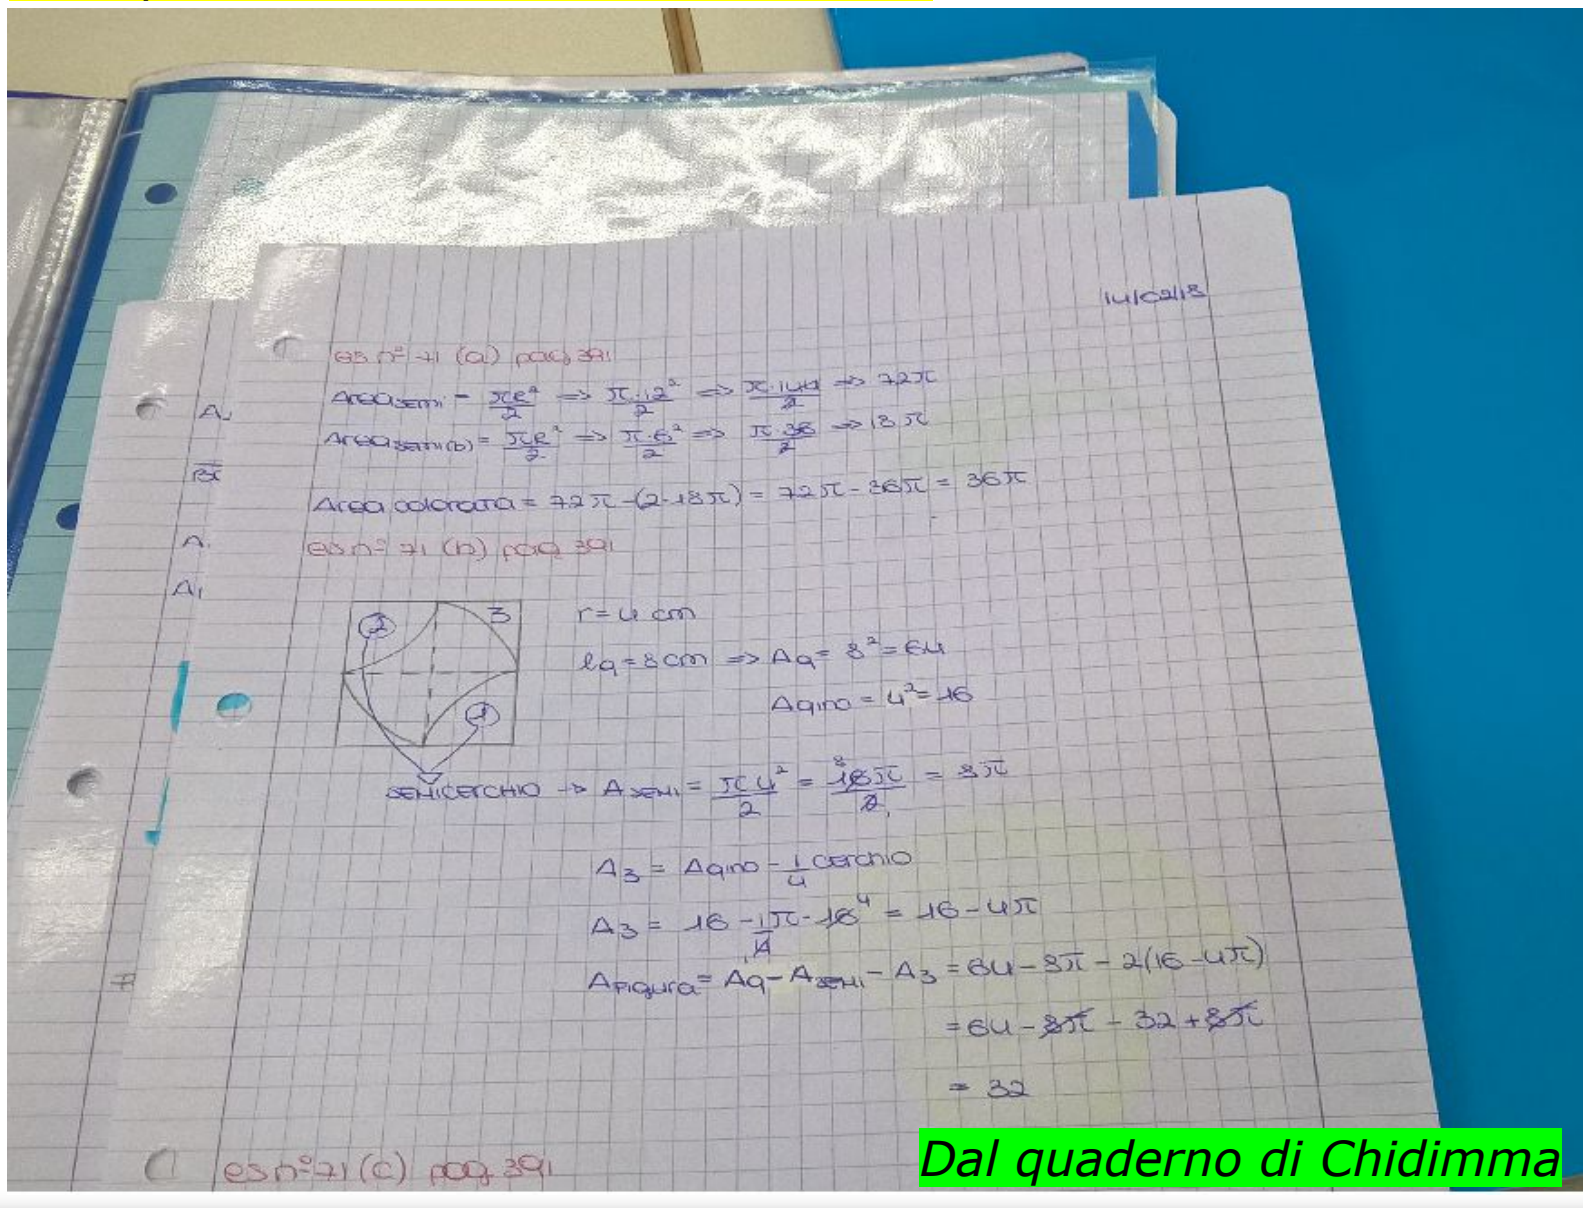 14/02/18
es n° 71 (a) pag 391
Area semi = πR²/2 => π·12²/2 => π·144/2 => 72π
Area semi(b) = πR²/2 => π·6²/2 => π·36/2 => 18π
Area colorata = 72π-(2·18π) = 72π-36π = 36π
es n° 71 (b) pag 391
2
3
1
r = 4 cm
lq = 8 cm => Aq = 8² = 64
Aqino = 4² = 16
SEMICERCHIO -> A SEMI = π4²/2 = 16π/2 = 8π
8
A3 = Aqino - 1/4 cerchio
A3 = 16 - 1/4 π·16 4 = 16-4π
A Figura = Aq - A SEMI - A3 = 64 - 8π - 2(16-4π)
= 64 - 8π - 32 + 8π
= 32
es n° 71 (c) pag 391
A
A
A
Dal quaderno di Chidimma